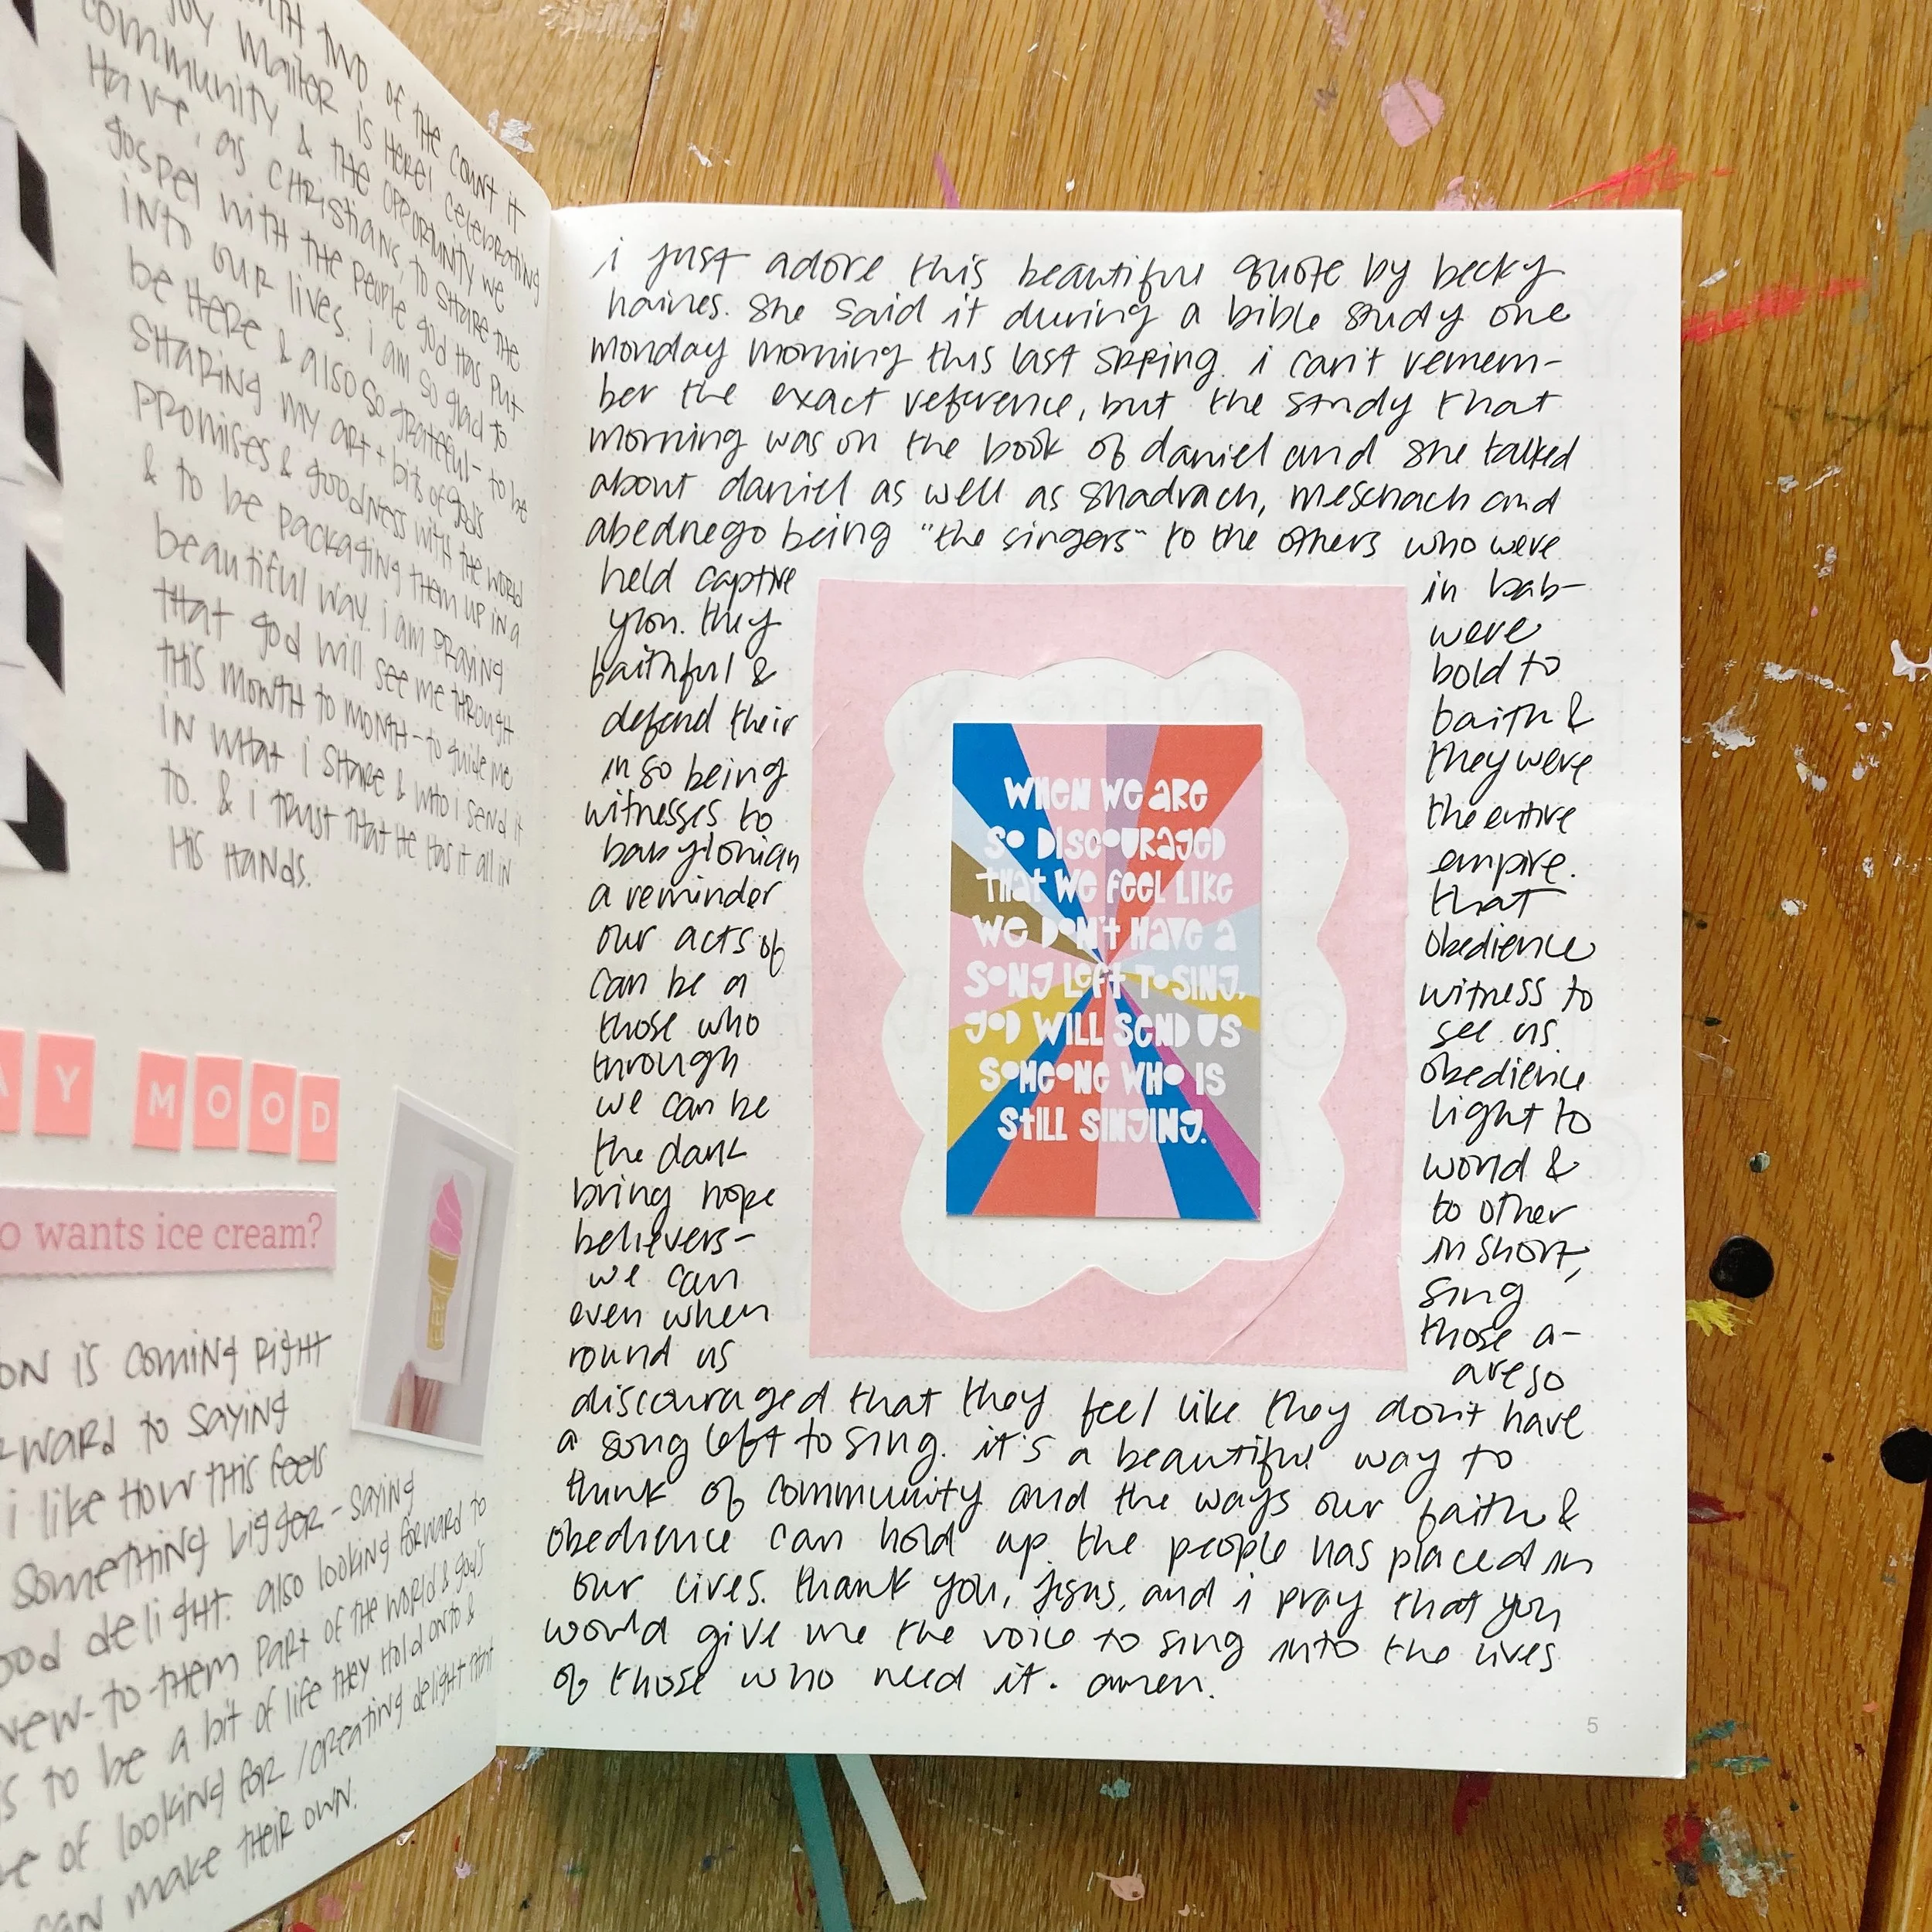 two of the count it
joy mailer is here! celebrating
community & the opportunity we
have, as christians, to share the
gospel with the people god has put
into our lives. i am so glad to
be here & also so grateful - to be
sharing my art + bits of god's
promises & goodness with the world
& to be packaging them up in a
beautiful way. i am praying
that god will see me through
this month to month - to guide me
in what i share & who i send it
to. & i trust that he has it all in
his hands.
AY MOOD
o wants ice cream?
on is coming right
ward to saying
i like how this feels
something bigger - saying
ood delight. also looking forward to
new-to-them part of the world & god's
s to be a bit of life they hold onto &
e of looking for / creating delight that
can make their own.
i just adore this beautiful quote by becky
haines. she said it during a bible study one
monday morning this last spring. i can't remem-
ber the exact reference, but the study that
morning was on the book of daniel and she talked
about daniel as well as shadrach, meschach and
abednego being "the singers" to the others who were
held captive in bab-
ylon. they were
faithful & bold to
defend their faith &
in so being they were
witnesses to the entire
babylonian empire.
a reminder that
our acts of obedience
can be a witness to
those who see us.
through obedience
we can be light to
the dark world &
bring hope to other
believers- in short,
we can sing
even when those a-
round us are so
discouraged that they feel like they don't have
a song left to sing. it's a beautiful way to
think of community and the ways our faith &
obedience can hold up the people has placed in
our lives. thank you, jesus, and i pray that you
would give me the voice to sing into the lives
of those who need it. amen.
WHEN WE ARE
SO DISCOURAGED
THAT WE FEEL LIKE
WE DON'T HAVE A
SONG LEFT TO SING,
GOD WILL SEND US
SOMEONE WHO IS
STILL SINGING.
5